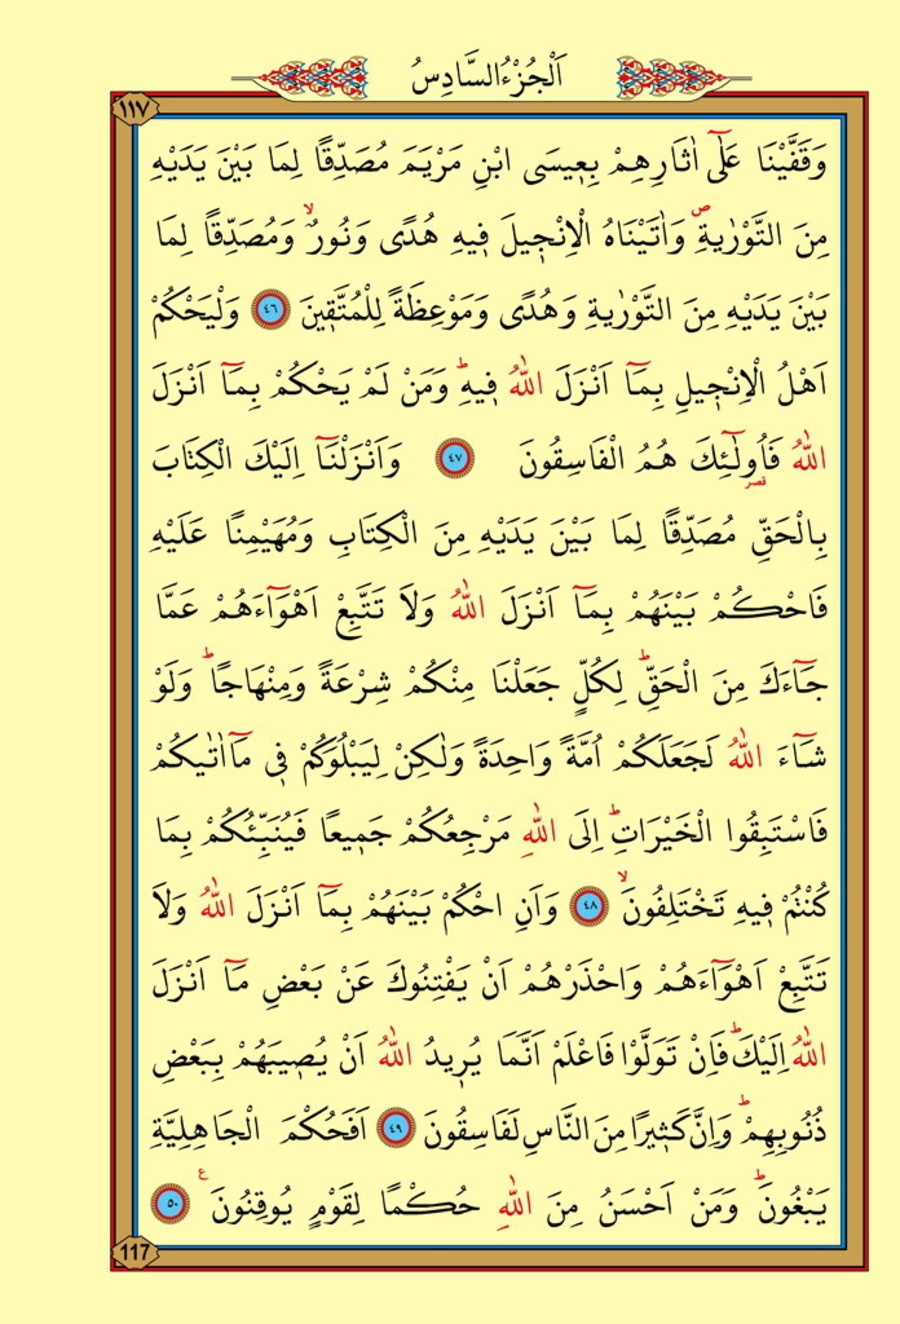 اَلْجُزْءُالسَّادِسُ
١١٧
وَقَفَّيْنَا عَلٰٓى اٰثَارِهِمْ بِعٖيسَى ابْنِ مَرْيَمَ مُصَدِّقًا لِمَا بَيْنَ يَدَيْهِ
مِنَ التَّوْرٰيةِۖ وَاٰتَيْنَاهُ الْاِنْجٖيلَ فٖيهِ هُدًى وَنُورٌۙ وَمُصَدِّقًا لِمَا
بَيْنَ يَدَيْهِ مِنَ التَّوْرٰيةِ وَهُدًى وَمَوْعِظَةً لِلْمُتَّقٖينَ ﴿٤٦﴾ وَلْيَحْكُمْ
اَهْلُ الْاِنْجٖيلِ بِمَٓا اَنْزَلَ اللّٰهُ فٖيهِؕ وَمَنْ لَمْ يَحْكُمْ بِمَٓا اَنْزَلَ
اللّٰهُ فَاُولٰٓئِكَ هُمُ الْفَاسِقُونَ ﴿٤٧﴾ وَاَنْزَلْنَٓا اِلَيْكَ الْكِتَابَ
بِالْحَقِّ مُصَدِّقًا لِمَا بَيْنَ يَدَيْهِ مِنَ الْكِتَابِ وَمُهَيْمِنًا عَلَيْهِ
فَاحْكُمْ بَيْنَهُمْ بِمَٓا اَنْزَلَ اللّٰهُ وَلَا تَتَّبِعْ اَهْوَٓاءَهُمْ عَمَّا
جَٓاءَكَ مِنَ الْحَقِّؕ لِكُلٍّ جَعَلْنَا مِنْكُمْ شِرْعَةً وَمِنْهَاجًاؕ وَلَوْ
شَٓاءَ اللّٰهُ لَجَعَلَكُمْ اُمَّةً وَاحِدَةً وَلٰكِنْ لِيَبْلُوَكُمْ فٖى مَٓا اٰتٰيكُمْ
فَاسْتَبِقُوا الْخَيْرَاتِؕ اِلَى اللّٰهِ مَرْجِعُكُمْ جَمٖيعًا فَيُنَبِّئُكُمْ بِمَا
كُنْتُمْ فٖيهِ تَخْتَلِفُونَۙ ﴿٤٨﴾ وَاَنِ احْكُمْ بَيْنَهُمْ بِمَٓا اَنْزَلَ اللّٰهُ وَلَا
تَتَّبِعْ اَهْوَٓاءَهُمْ وَاحْذَرْهُمْ اَنْ يَفْتِنُوكَ عَنْ بَعْضِ مَٓا اَنْزَلَ
اللّٰهُ اِلَيْكَؕ فَاِنْ تَوَلَّوْا فَاعْلَمْ اَنَّمَا يُرٖيدُ اللّٰهُ اَنْ يُصٖيبَهُمْ بِبَعْضِ
ذُنُوبِهِمْؕ وَاِنَّ كَثٖيرًا مِنَ النَّاسِ لَفَاسِقُونَ ﴿٤٩﴾ اَفَحُكْمَ الْجَاهِلِيَّةِ
يَبْغُونَؕ وَمَنْ اَحْسَنُ مِنَ اللّٰهِ حُكْمًا لِقَوْمٍ يُوقِنُونَ ع ﴿٥٠﴾
117